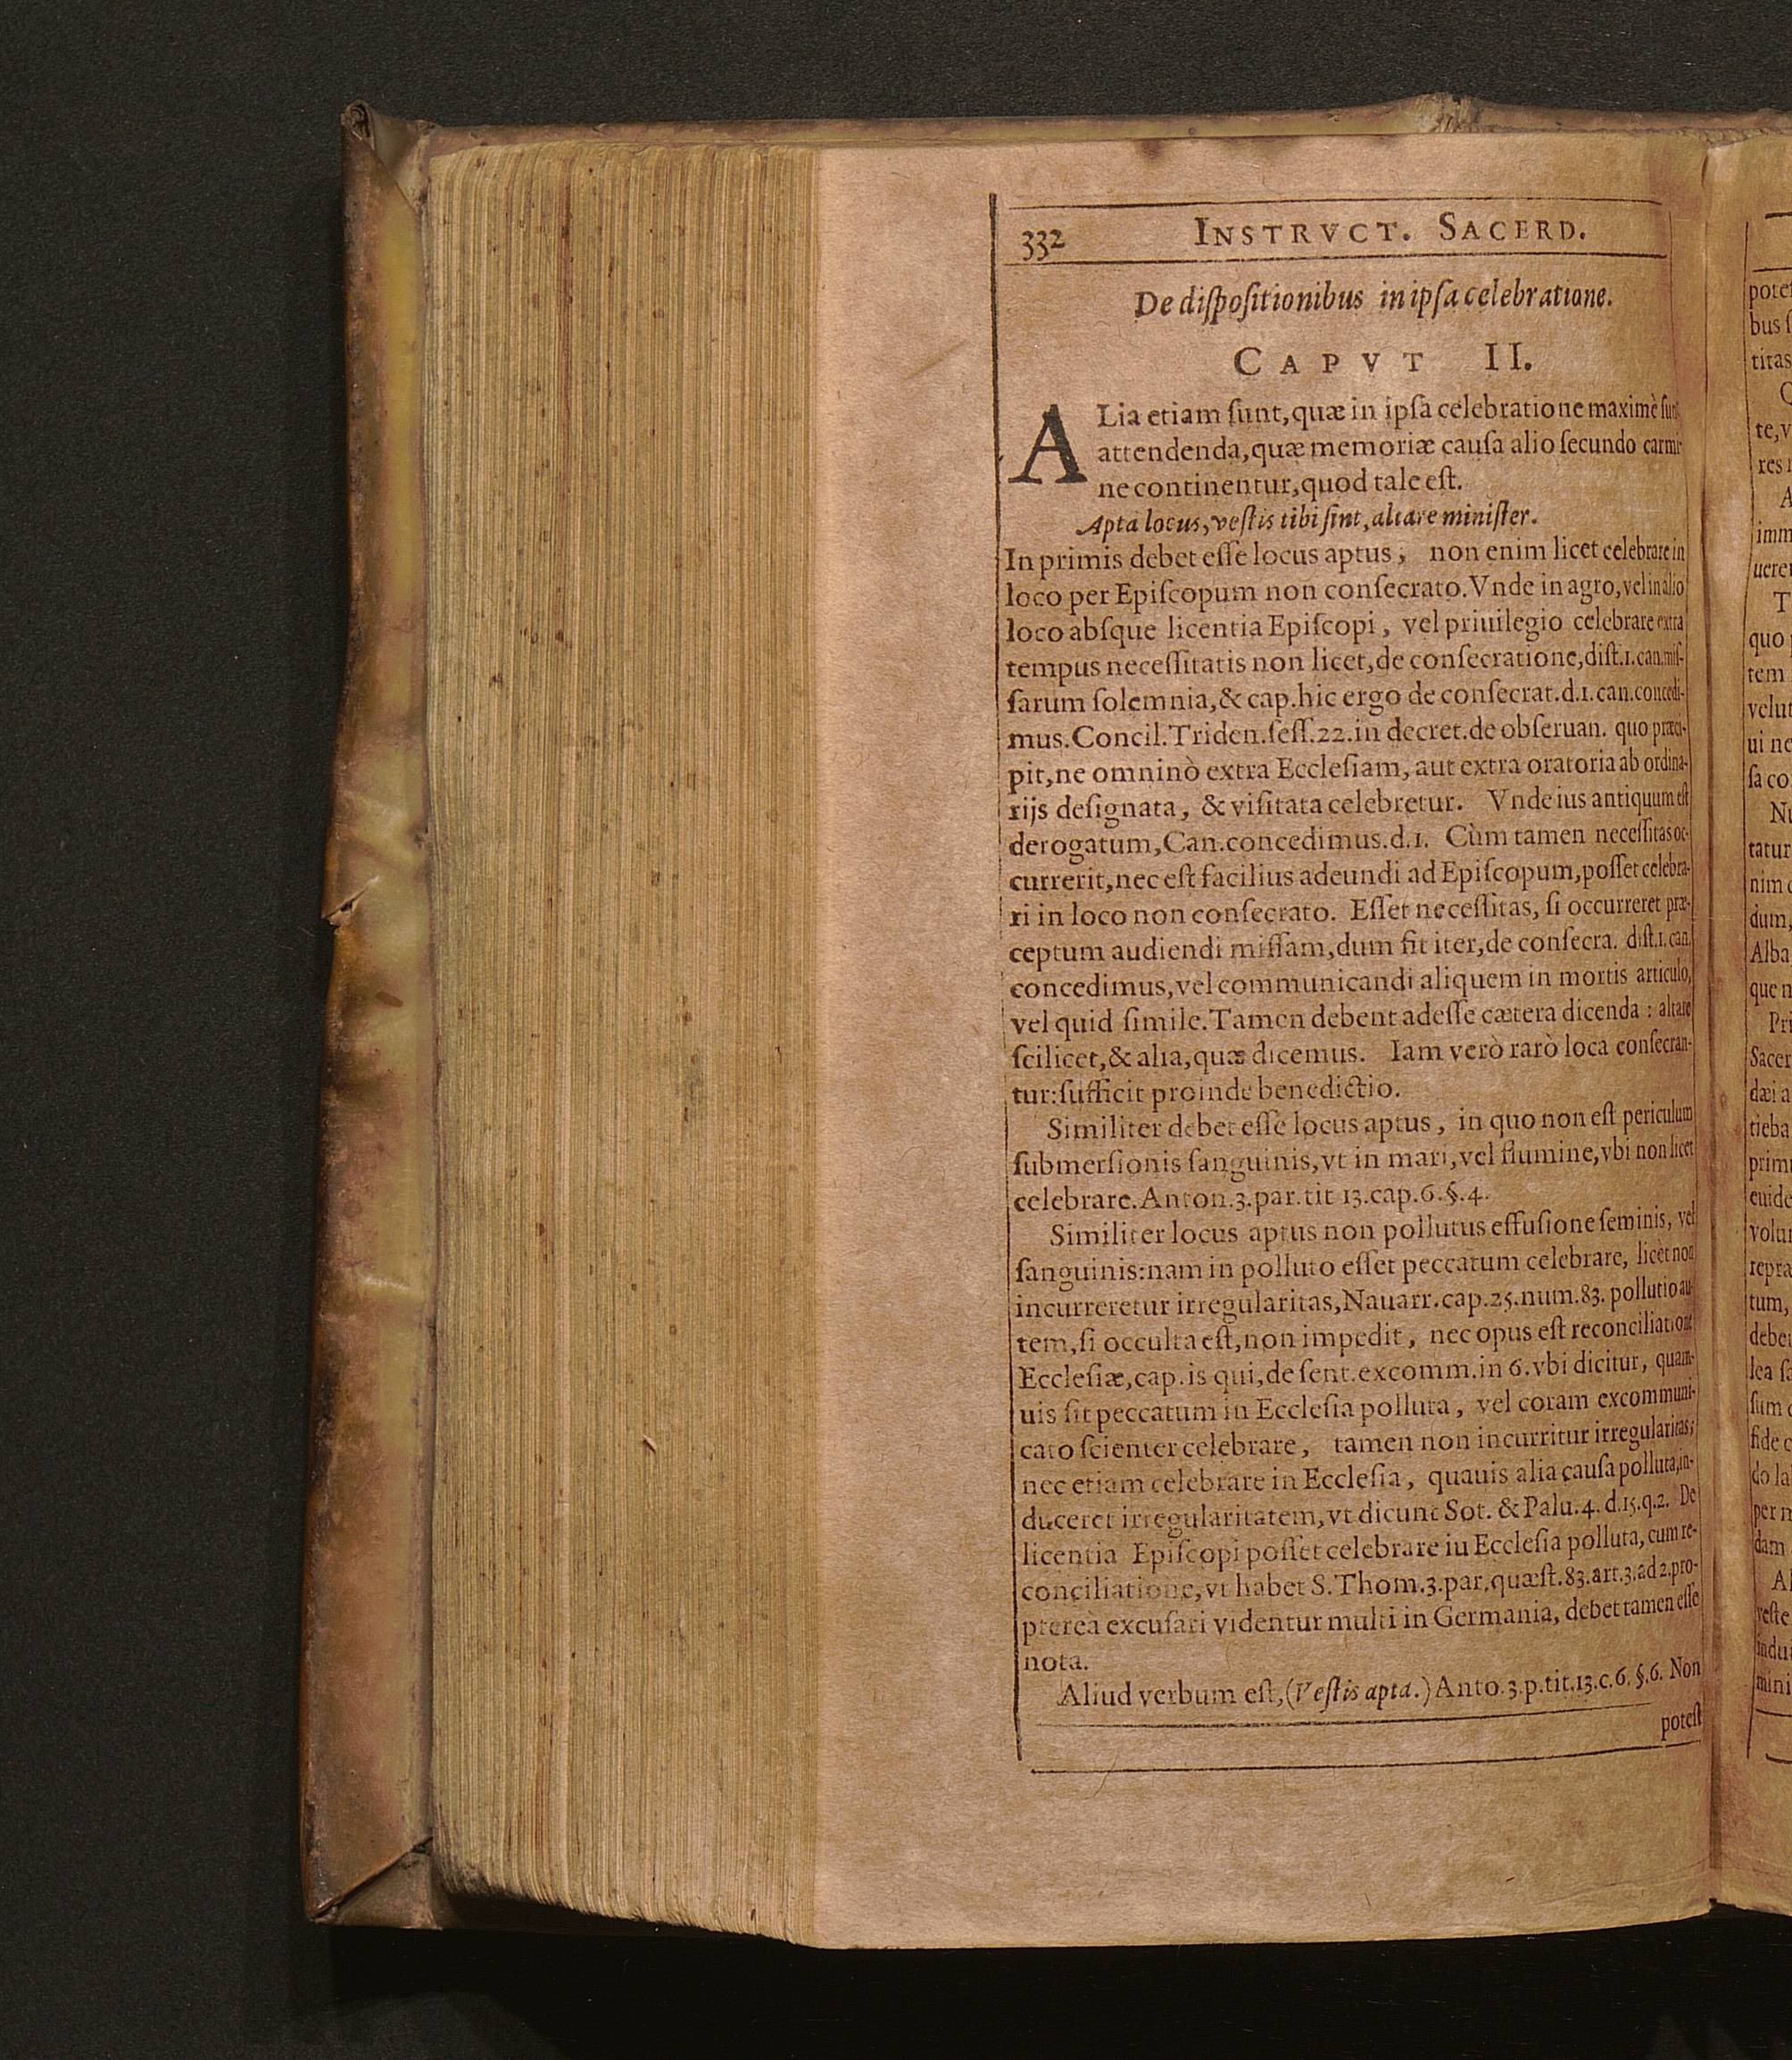 332 INSTRVCT. SACERD.
De dispositionibus in ipsa celebratione.
CAPVT II.
ALia etiam sunt, quæ in ipsa celebratione maximè sunt
attendenda, quæ memoriæ causa alio secundo carmi-
ne continentur, quod tale est.
Apta locus, vestis tibi sint, altare minister.
In primis debet esse locus aptus; non enim licet celebrare in
loco per Episcopum non consecrato. Vnde in agro, vel in alio
loco absque licentia Episcopi, vel priuilegio celebrare extra
tempus necessitatis non licet, de consecratione, dist. 1. can. mis-
sarum solemnia, & cap. hic ergo de consecrat. d. 1. can. concedi-
mus. Concil. Triden. sess. 22. in decret. de obseruan. quo præci-
pit, ne omninò extra Ecclesiam, aut extra oratoria ab ordina-
rijs designata, & visitata celebretur. Vnde ius antiquum est
derogatum, Can. concedimus. d. 1. Cùm tamen necessitas oc-
currerit, nec est facilius adeundi ad Episcopum, posset celebra-
ri in loco non consecrato. Esset necessitas, si occurreret præ-
ceptum audiendi missam, dum fit iter, de consecra. dist. 1. can.
concedimus, vel communicandi aliquem in mortis articulo,
vel quid simile. Tamen debent adesse cætera dicenda : altare
scilicet, & alia, quæ dicemus. Iam verò rarò loca consecran-
tur: sufficit proinde benedictio.
Similiter debet esse locus aptus, in quo non est periculum
submersionis sanguinis, vt in mari, vel flumine, vbi non licet
celebrare. Anton. 3. par. tit 13. cap. 6. §. 4.
Similiter locus aptus non pollutus effusione seminis, vel
sanguinis: nam in polluto esset peccatum celebrare, licèt non
incurreretur irregularitas, Nauarr. cap. 25. num. 83. pollutio au-
tem, si occulta est, non impedit, nec opus est reconciliatione
Ecclesiæ, cap. is qui, de sent. excomm. in 6. vbi dicitur, quam-
uis sit peccatum in Ecclesia polluta, vel coram excommuni-
cato scienter celebrare, tamen non incurritur irregularitas;
nec etiam celebrare in Ecclesia, quauis alia causa polluta, in-
duceret irregularitatem, vt dicunt Sot. & Palu. 4. d. 15. q. 2. De
licentia Episcopi posset celebrare iu Ecclesia polluta, cum re-
conciliatione, vt habet S. Thom. 3. par. quæst. 83. art. 3. ad 2. pro-
pterea excusari videntur multi in Germania, debet tamen esse
nota.
Aliud verbum est, (Vestis apta.) Anto. 3. p. tit. 13. c. 6. §. 6. Non
potest